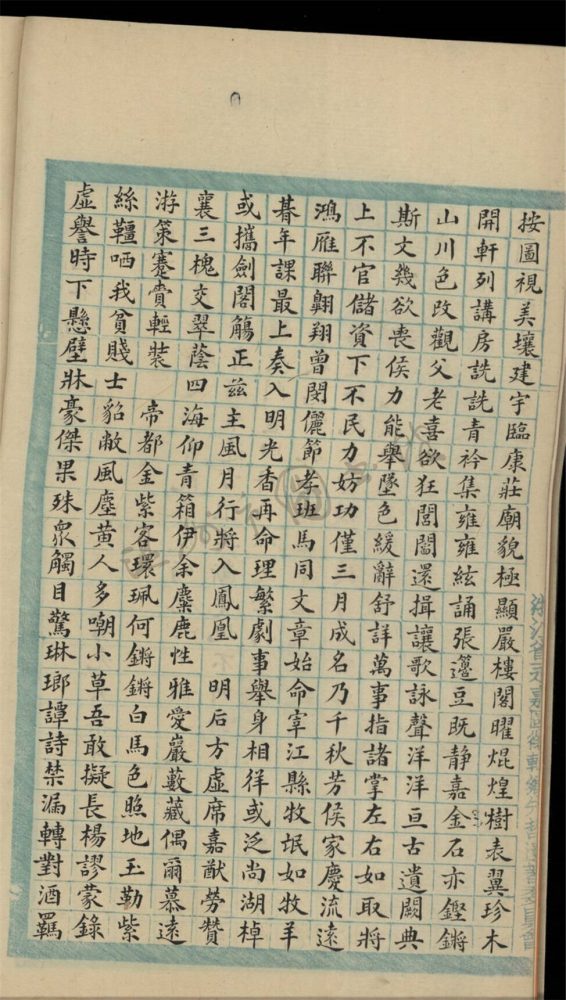 按圖視美壤建宇臨康莊廟貌極顯嚴樓閣曜焜煌樹表翼珍木
開軒列講房詵詵青衿集雍雍絃誦張籩豆既静嘉金石亦鏗鏘
山川色改觀父老喜欲狂閭閻還揖讓歌詠聲洋洋亘古遺闕典
斯文幾欲喪侯力能舉墜色緩辭舒詳萬事指諸掌左右如取將
上不官儲資下不民力妨功僅三月成名乃千秋芳侯家慶流遠
鴻雁聯翺翔曾閔儷節孝班馬同文章始命宰江縣牧氓如牧羊
朞年課最上奏入明光香再命理繁劇事舉身相徉或泛尚湖棹
或攜劍閣觴正兹主風月行將入鳳凰 明后方虛席嘉猷勞贊
襄三槐交翠蔭四海仰青箱伊余麋鹿性雅愛巖藪藏偶爾慕遠
游策蹇賫輕裝 帝都金紫客環珮何鏘鏘白馬色照地玉勒紫
絲韁哂我貧賤士貂敝風塵黄人多嘲小草吾敢擬長楊謬蒙錄
虛譽時下懸壁牀豪傑果殊衆觸目驚琳瑯譚詩禁漏轉對酒羈